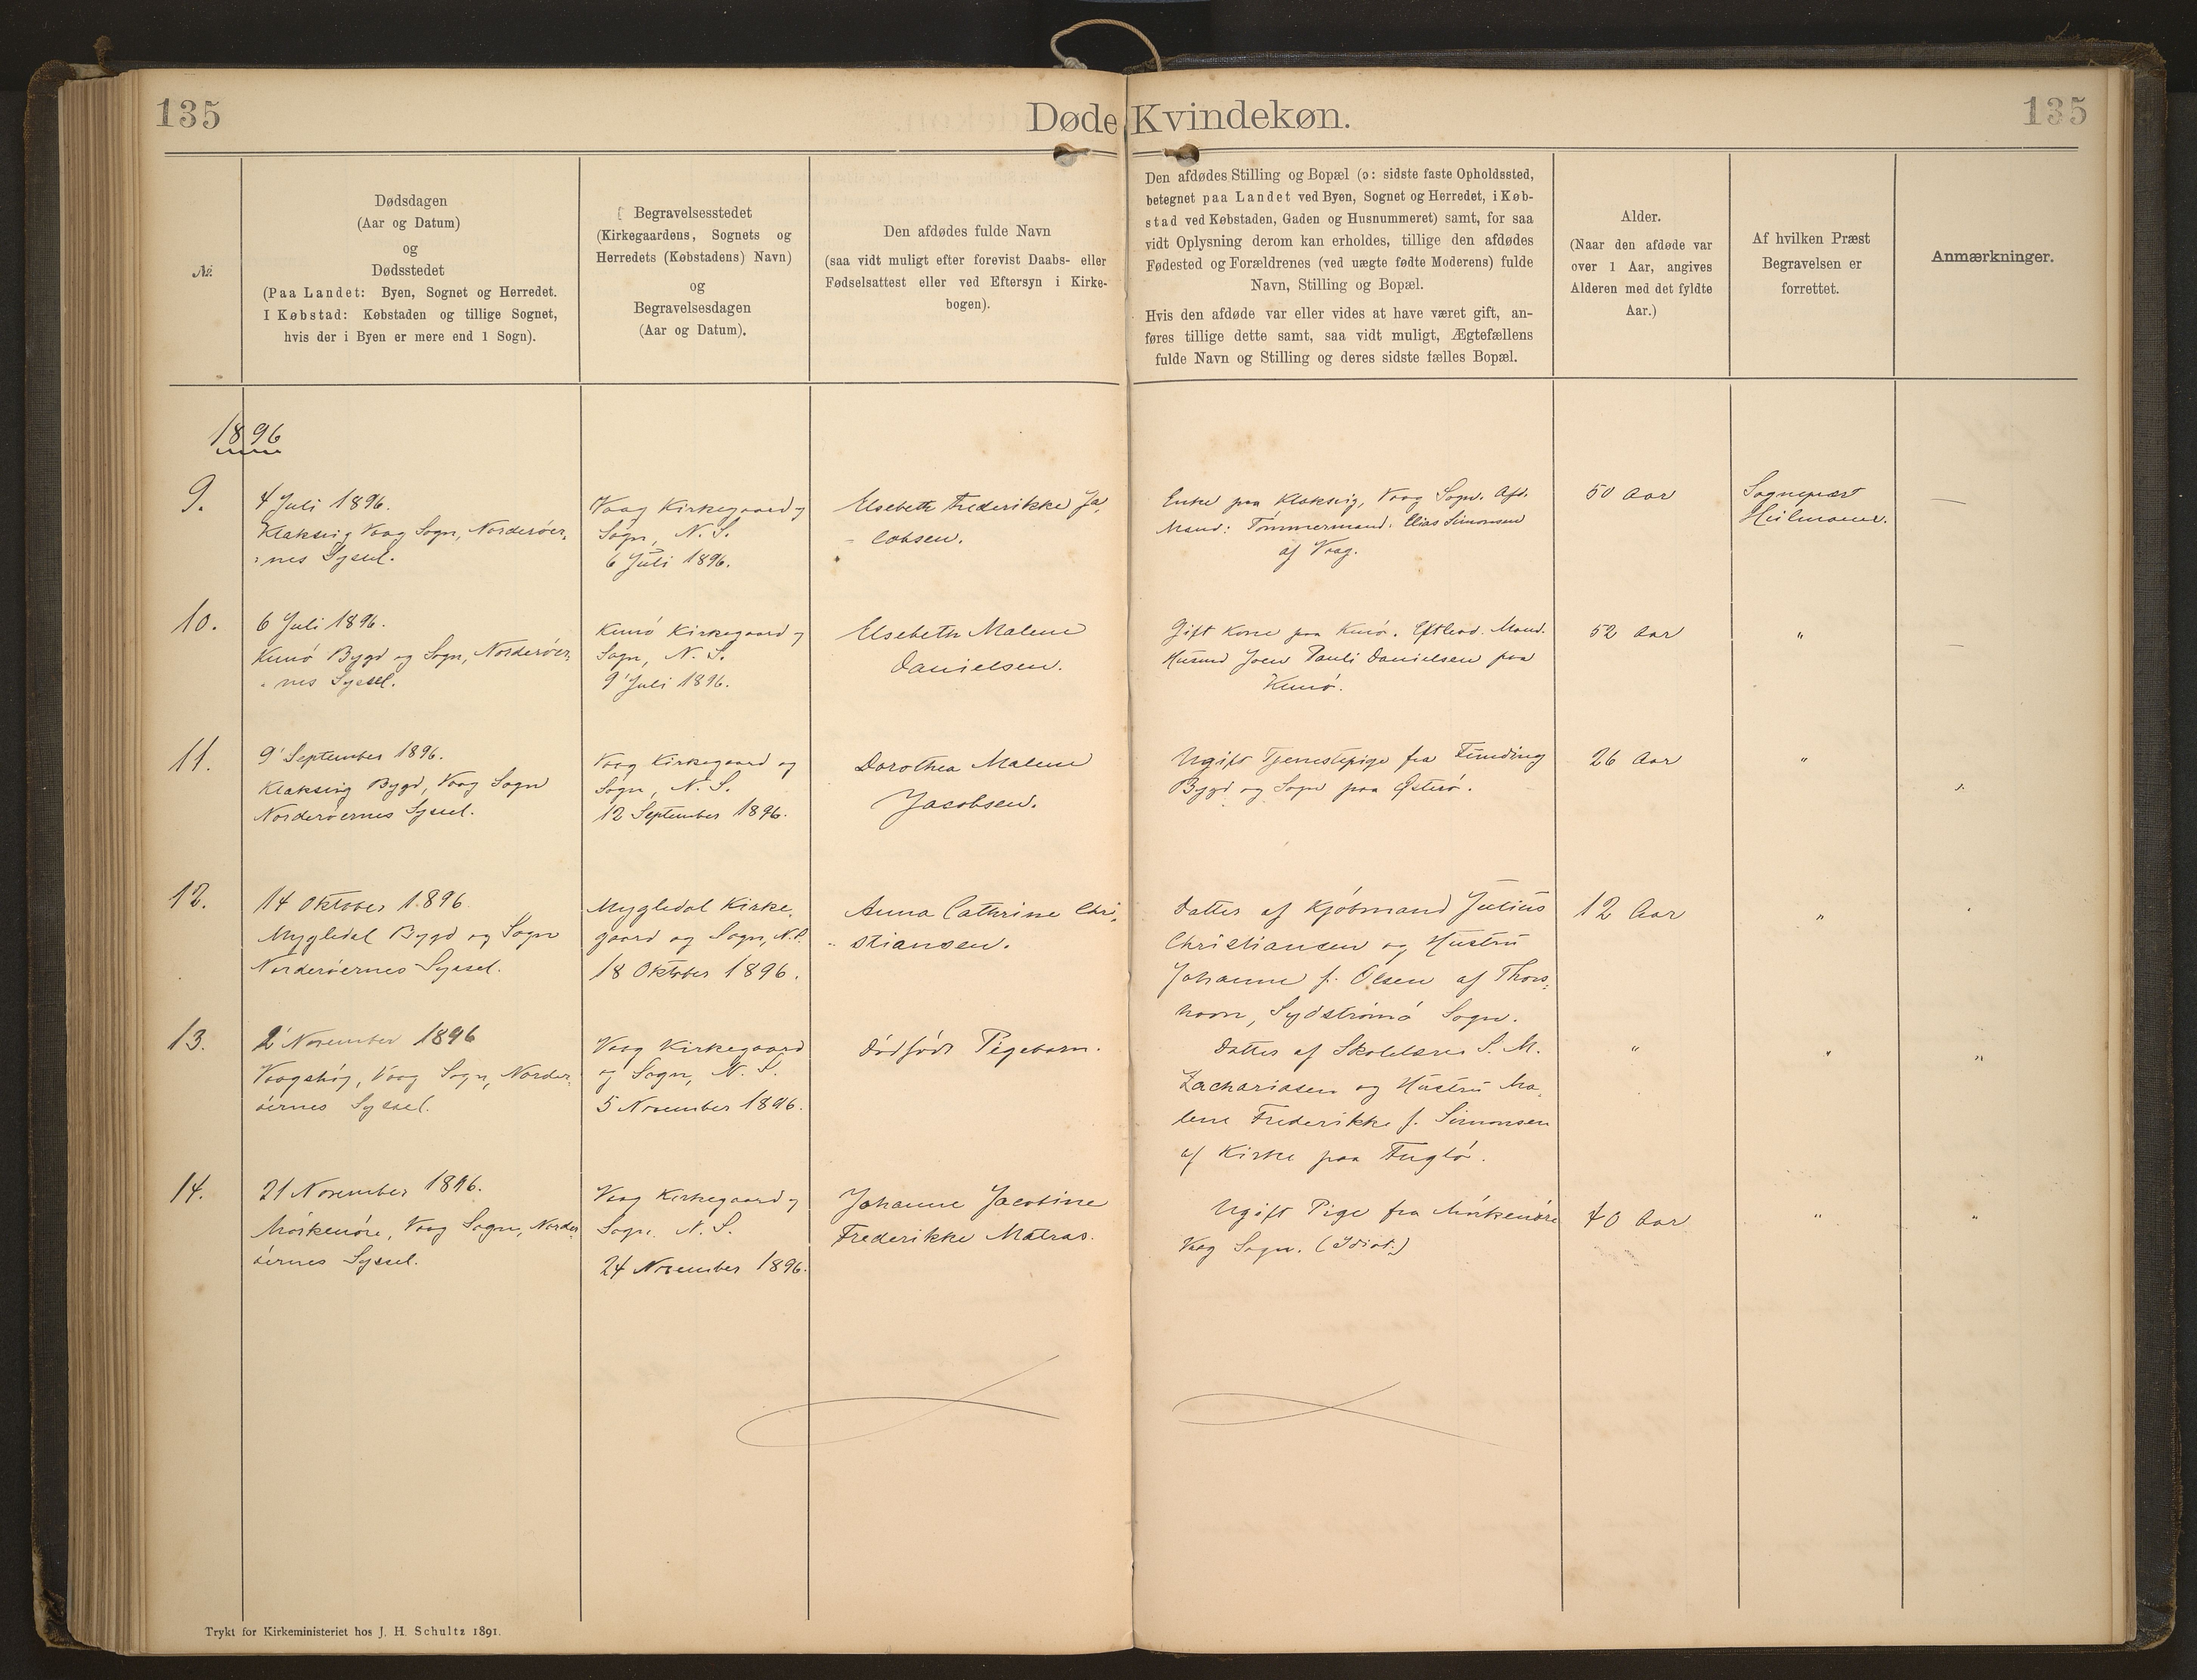 135
Døde Kvindekøn.
135
№
Dødsdagen
(Aar og Datum)
og
Dødsstedet
(Paa Landet: Byen, Sognet og Herredet.
I Købstad: Købstaden og tillige Sognet,
hvis der i Byen er mere end 1 Sogn).
Begravelsesstedet
(Kirkegaardens, Sognets og
Herredets (Købstadens) Navn)
og
Begravelsesdagen
(Aar og Datum).
Den afdødes fulde Navn
(saa vidt muligt efter forevist Daabs- eller
Fødselsattest eller ved Eftersyn i Kirke-
bogen).
Den afdødes Stilling og Bopæl (ɔ: sidste faste Opholdssted,
betegnet paa Landet ved Byen, Sognet og Herredet, i Køb-
stad ved Købstaden, Gaden og Husnummeret) samt, for saa
vidt Oplysning derom kan erholdes, tillige den afdødes
Fødested og Forældrenes (ved uægte fødte Moderens) fulde
Navn, Stilling og Bopæl.
Hvis den afdøde var eller vides at have været gift, an-
føres tillige dette samt, saa vidt muligt, Ægtefællens
fulde Navn og Stilling og deres sidste fælles Bopæl.
Alder.
(Naar den afdøde var
over 1 Aar, angives
Alderen med det fyldte
Aar.)
Af hvilken Præst
Begravelsen er
forrettet.
Anmærkninger.
1896
9.
4 Juli 1896.
Klaksvig Vaag Sogn, Norderöer-
nes Syssel.
Vaag Kirkegaard og
Sogn, N. S.
6 Juli 1896.
Elsebeth Frederikke Ja-
cobsen.
Enke paa Klaksvig, Vaag Sogn. Afd.
Mand: Tömmermand. Elias Simonsen
af Vaag.
50 Aar
Sognepræst
Heilmann.
—
10.
6 Juli 1896.
Kunö Bygd og Sogn, Norderöer-
nes Syssel.
Kunö Kirkegaard og
Sogn, N. S.
9' Juli 1896.
Elsebeth Malene
Danielsen.
Gift Kone paa Kunö. Efterl. Mand.
Husmd Joen Pauli Danielsen paa
Kunö.
52 Aar
"
—
11.
9' September 1896.
Klaksvig Bygd, Vaag Sogn
Norderöernes Syssel.
Vaag Kirkegaard og
Sogn, N. S.
12 September 1896.
Dorothea Malene
Jacobsen.
Ugift Tjenestepige fra Funding
Bygd og Sogn paa Österö.
26 Aar
"
"
12.
14 Oktober 1896.
Mygledal Bygd og Sogn
Norderöernes Syssel.
Mygledal Kirke-
gaard og Sogn, N. S.
18 Oktober 1896.
Anna Cathrine Chri-
stiansen.
Datter af Kjöbmand Julius
Christiansen og Hustru
Johanne f. Olsen af Thors-
havn, Sydströmö Sogn.
12 Aar
"
"
13.
2' November 1896
Vaagshög, Vaag Sogn, Norder-
öernes Syssel.
Vaag Kirkegaard
og Sogn, N. S.
5 November 1896.
Dödfödt Pigebarn.
Datter af Skolelærer S. M.
Zachariasen og Hustru Ma-
lene Frederikke f. Simonsen
af Kirke paa Fuglö.
"
"
"
14.
21 November 1896.
Mörkenöre, Vaag Sogn, Norder-
öernes Syssel.
Vaag Kirkegaard og
Sogn. N. S.
24 November 1896.
Johanne Jacobine
Frederikke Matras.
Ugift Pige fra Mörkenöre
Vaag Sogn. (Idiot.)
40 Aar
"
"
Trykt for Kirkeministeriet hos J. H. Schultz 1891.